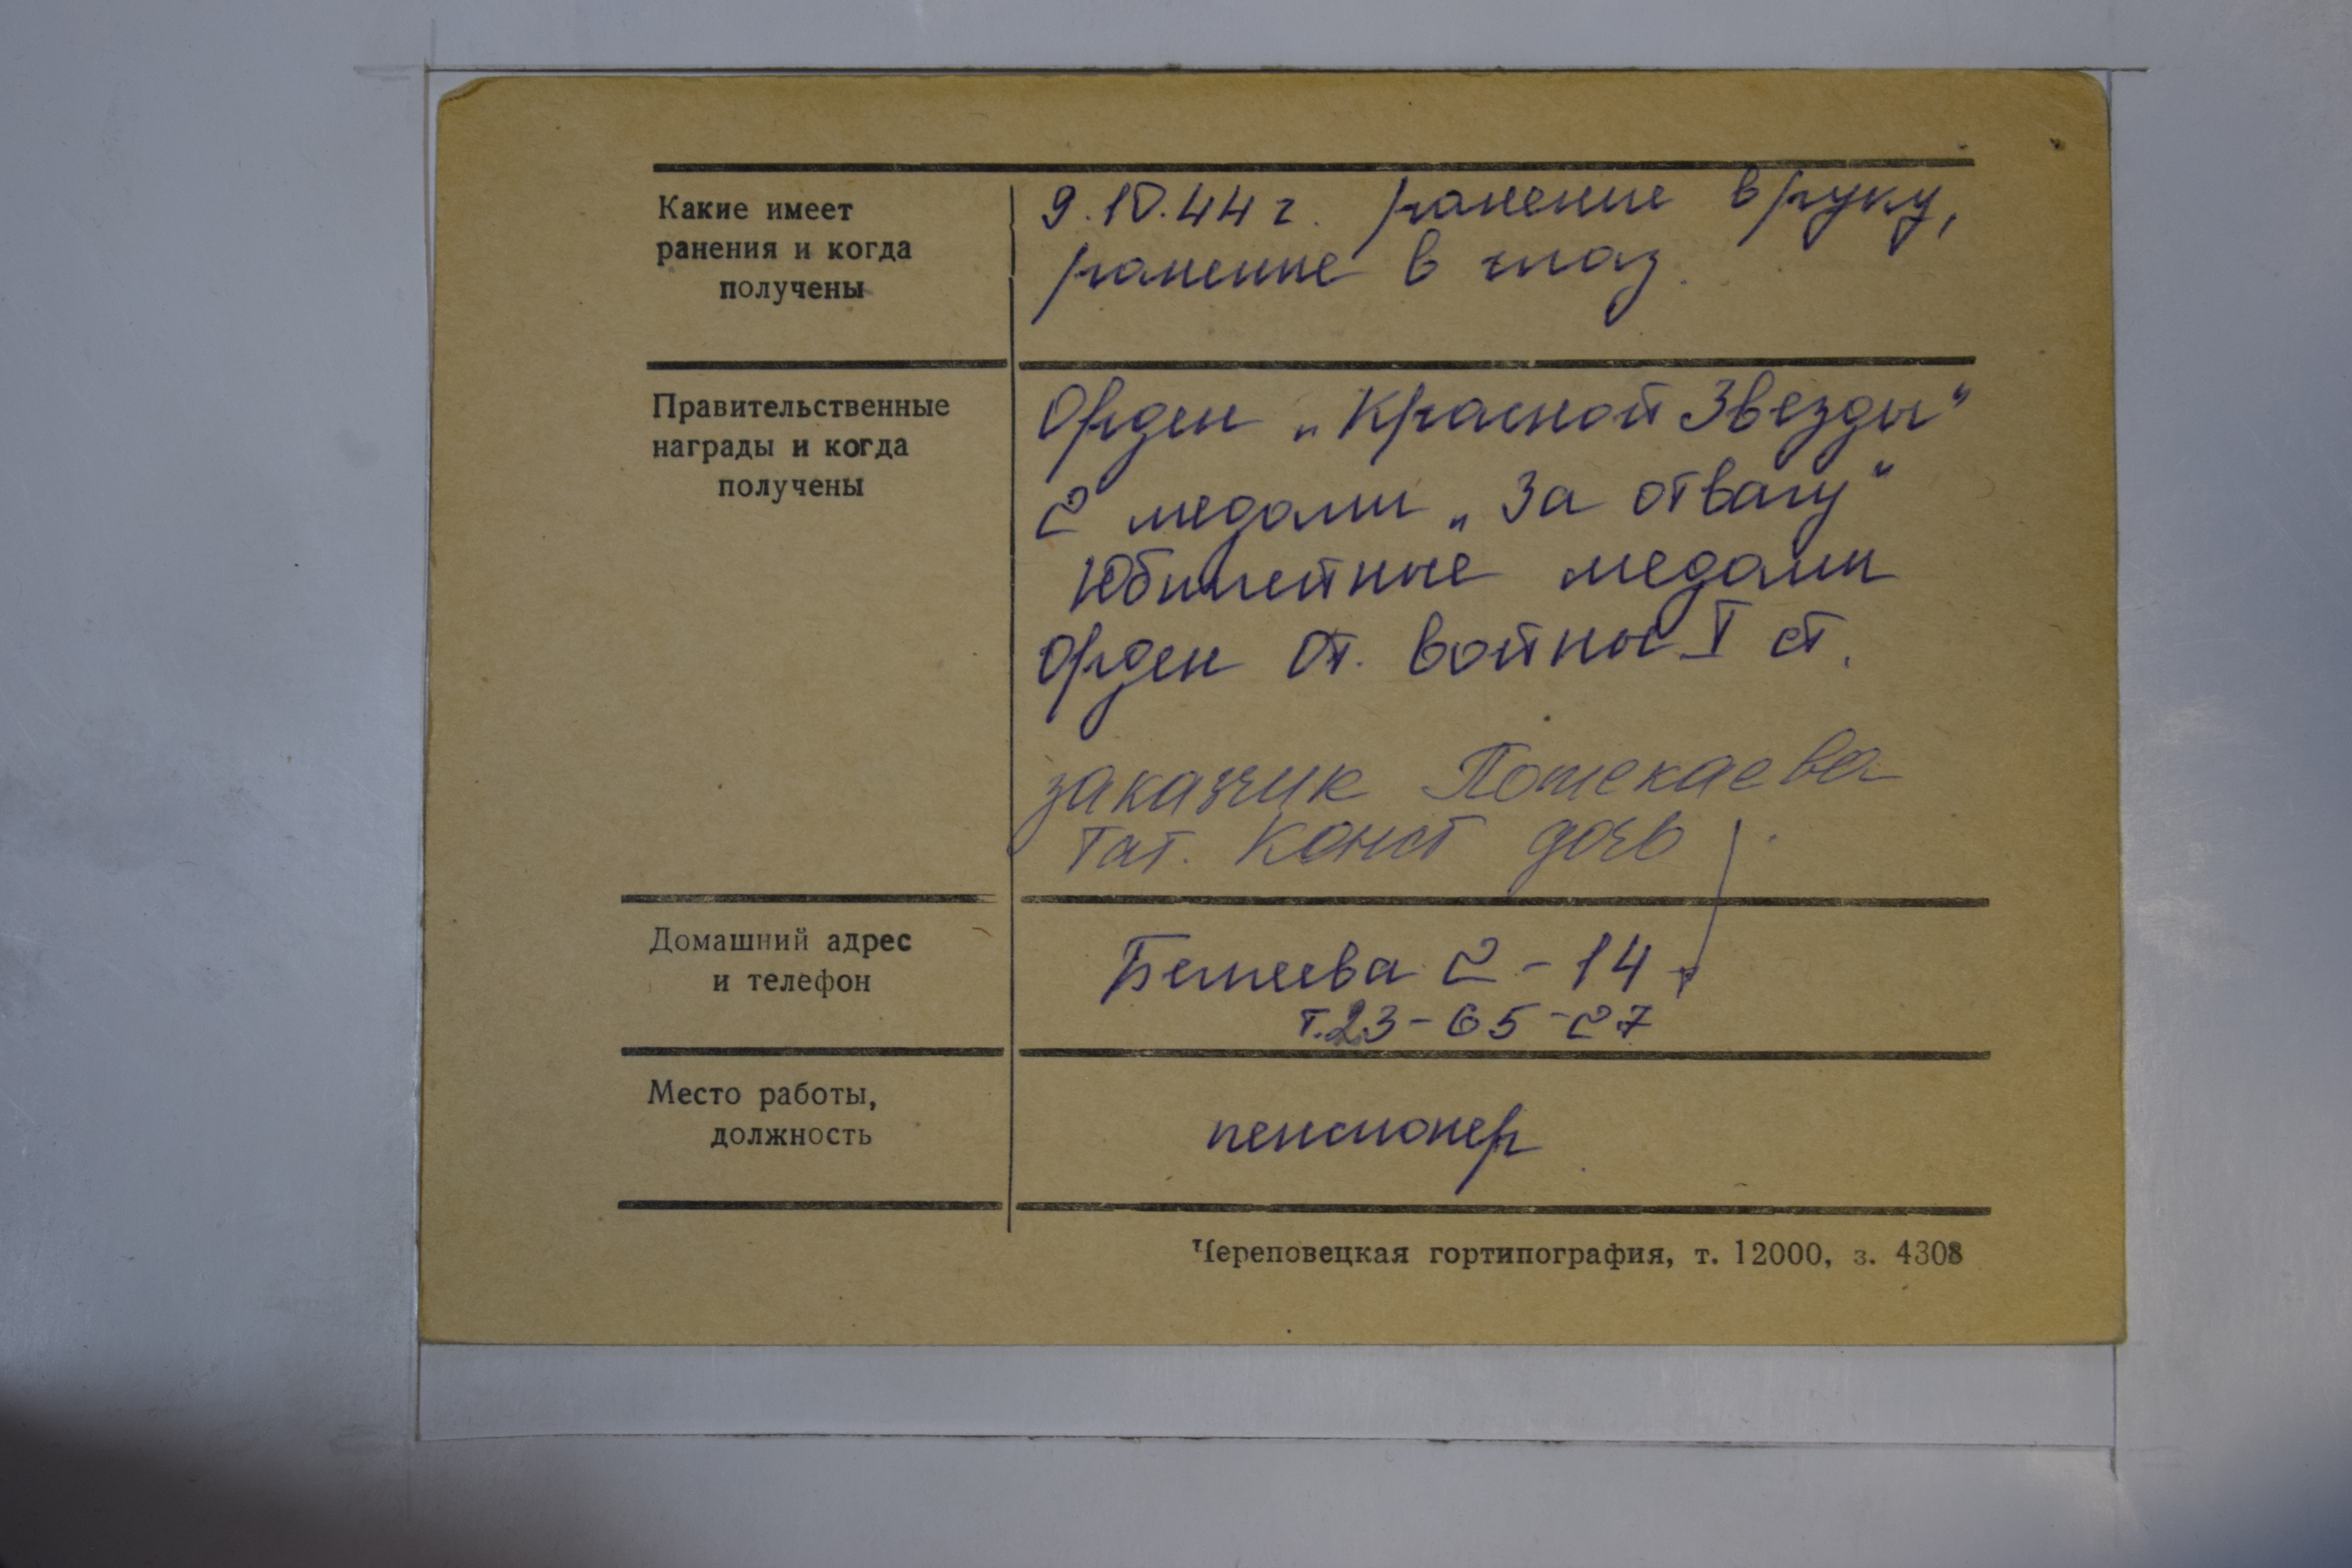 Какие имеет
ранения и когда
получены
9.10.44 г. ранение в руку,
ранение в глаз.
Правительственные
награды и когда
получены
Орден „Красной Звезды“
2 медали „За отвагу“
Юбилейные медали
Орден От. войны I ст.
заказчик Потекаева
Тат. Конст дочь
Домашний адрес
и телефон
Беляева 2-14
т.23-65-27
Место работы,
должность
пенсионер
Череповецкая гортипография, т. 12000, з. 4308